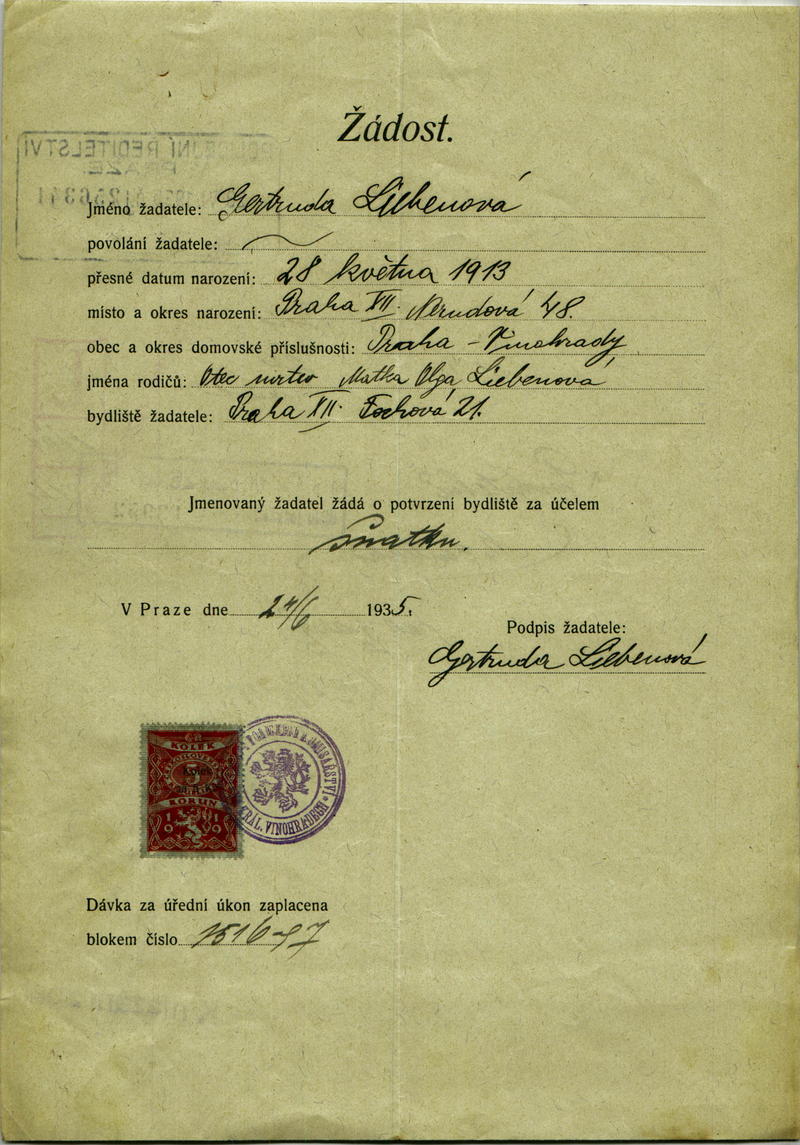 Žádost.
Jméno žadatele: Gertruda Liebenová
povolání žadatele:
přesné datum narození: 28 května 1913
místo a okres narození: Praha XII. Nerudová 48.
obec a okres domovské příslušnosti: Praha - Vinohrady
jména rodičů: Otec mrtev Matka Olga Liebenová
bydliště žadatele: Praha XII. Fochová 21.
Jmenovaný žadatel žádá o potvrzení bydliště za účelem
sňatku.
V Praze dne 24/6 1935.
Podpis žadatele:
Gertruda Liebenová
KOLEK
5
KORUN
1919
KRÁL. VINOHRADECH
Dávka za úřední úkon zaplacena
blokem číslo